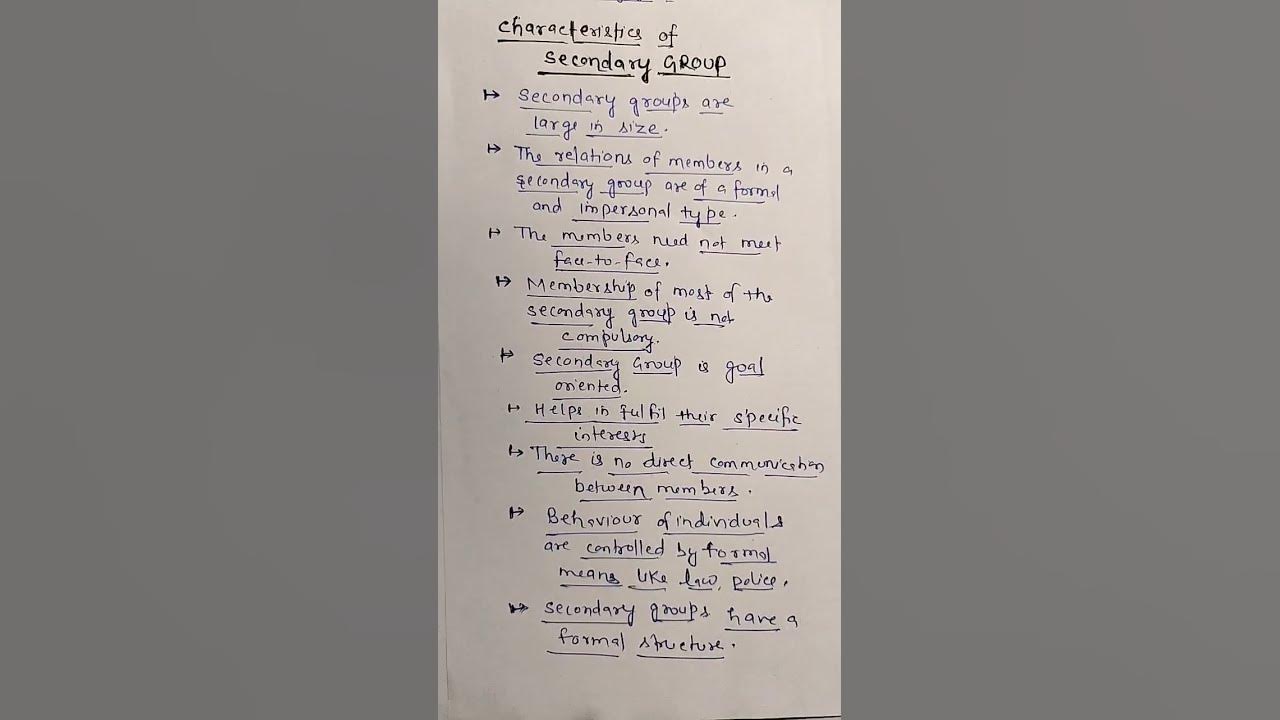 Characteristics of
Secondary GROUP
↦ Secondary groups are
large in size.
↦ The relations of members in a
secondary group are of a formal
and impersonal type.
↦ The members need not meet
face-to-face.
↦ Membership of most of the
secondary group is not
compulsory.
↦ Secondary Group is goal
oriented.
↦ Helps in fulfil their specific
interests
↦ There is no direct communication
between members.
↦ Behaviour of individuals
are controlled by formal
means like law, police.
↦ Secondary groups have a
formal structure.